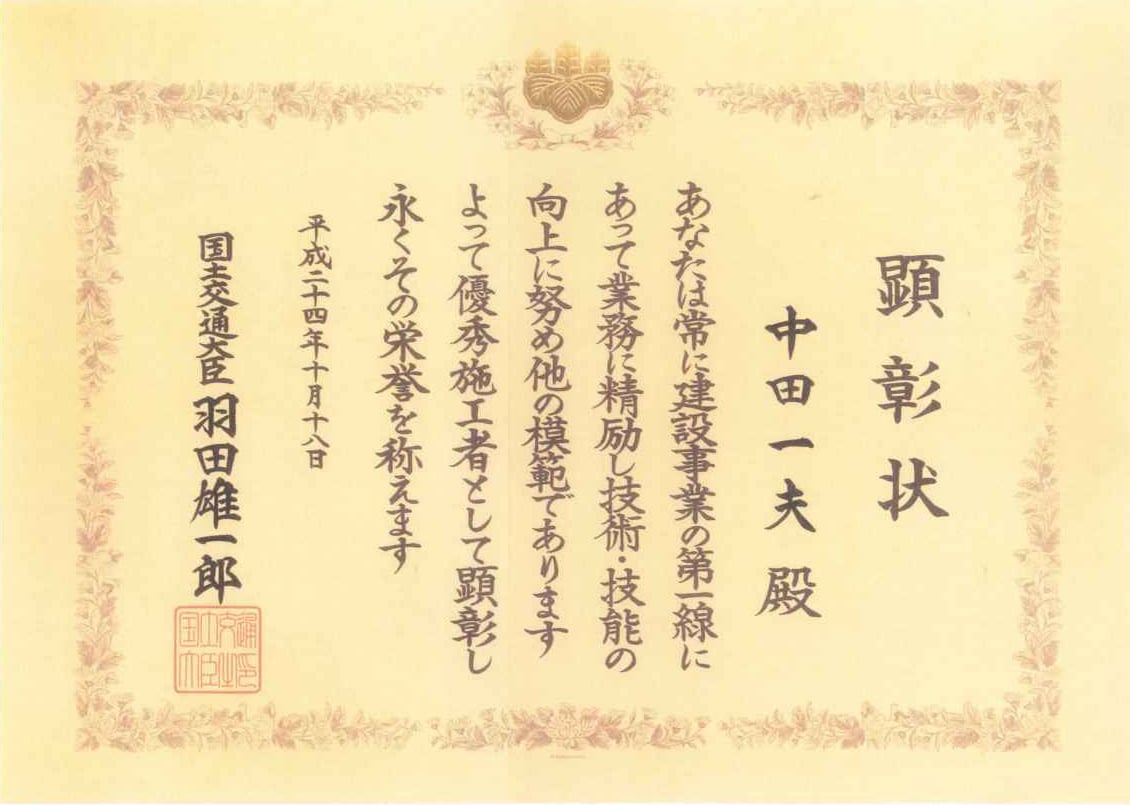 顕彰状
中田一夫殿
あなたは常に建設事業の第一線に
あって業務に精励し技術・技能の
向上に努め他の模範であります
よって優秀施工者として顕彰し
永くその栄誉を称えます
平成二十四年十月十八日
国土交通大臣 羽田雄一郎
国土交通大臣之印